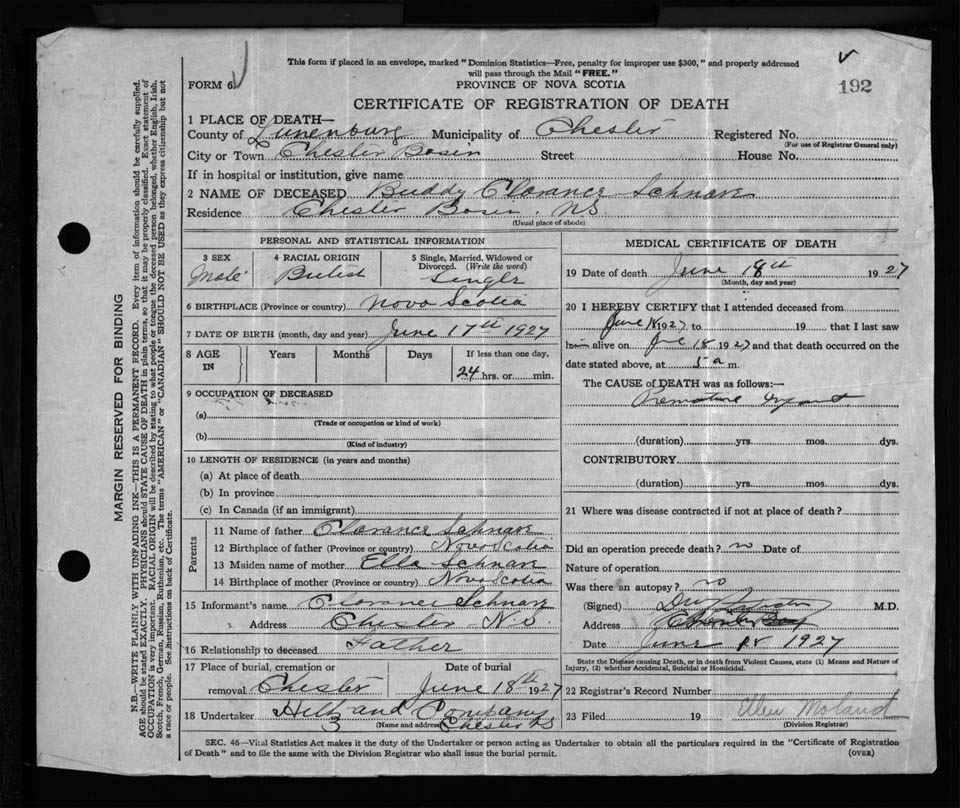 This form if placed in an envelope, marked "Dominion Statistics—Free, penalty for improper use $300," and properly addressed
will pass through the Mail "FREE."
192
FORM 6
PROVINCE OF NOVA SCOTIA
CERTIFICATE OF REGISTRATION OF DEATH
1 PLACE OF DEATH—
County of Lunenburg Municipality of Chester Registered No.
(For use of Registrar General only)
City or Town Chester Basin Street House No.
If in hospital or institution, give name
2 NAME OF DECEASED Buddy Clarance Schnare
Residence Chester Basin. N.S.
(Usual place of abode)
PERSONAL AND STATISTICAL INFORMATION
3 SEX 4 RACIAL ORIGIN 5 Single, Married, Widowed or
Divorced. (Write the word)
Male British Single
6 BIRTHPLACE (Province or country) Nova Scotia
7 DATE OF BIRTH (month, day and year) June 17th 1927
8 AGE IN Years Months Days If less than one day,
24 hrs. or min.
9 OCCUPATION OF DECEASED
(a)
(Trade or occupation or kind of work)
(b)
(Kind of industry)
10 LENGTH OF RESIDENCE (in years and months)
(a) At place of death
(b) In province
(c) In Canada (if an immigrant)
Parents
11 Name of father Clarance Schnare
12 Birthplace of father (Province or country) Nova Scotia
13 Maiden name of mother Ella Schnare
14 Birthplace of mother (Province or country) Nova Scotia
15 Informant's name Clarance Schnare
Address Chester N.S.
16 Relationship to deceased Father
17 Place of burial, cremation or Date of burial
removal Chester June 18th 1927
18 Undertaker Hilt and Company
3 (Name and address) Chester NS
MEDICAL CERTIFICATE OF DEATH
19 Date of death June 18th 1927
(Month, day and year)
20 I HEREBY CERTIFY that I attended deceased from
June 18 1927 to 19 that I last saw
him alive on June 18 1927 and that death occurred on the
date stated above, at 5 a m.
The CAUSE of DEATH was as follows:—
Premature Infant
(duration) yrs. mos. dys.
CONTRIBUTORY
(duration) yrs. mos. dys.
21 Where was disease contracted if not at place of death?
Did an operation precede death? no Date of
Nature of operation
Was there an autopsy? no
(Signed) M.D.
Address Chester
Date June 18 1927
State the Disease causing Death, or in death from Violent Causes, state (1) Means and Nature of
Injury, (2) whether Accidental, Suicidal or Homicidal.
22 Registrar's Record Number
23 Filed 19
(Division Registrar)
SEC. 46—Vital Statistics Act makes it the duty of the Undertaker or person acting as Undertaker to obtain all the particulars required in the "Certificate of Registration
of Death" and to file the same with the Division Registrar who shall issue the burial permit.
(OVER)
MARGIN RESERVED FOR BINDING
N.B.—WRITE PLAINLY WITH UNFADING INK—THIS IS A PERMANENT RECORD. Every item of information should be carefully supplied.
AGE should be stated EXACTLY. PHYSICIANS should STATE CAUSE OF DEATH in plain terms, so that it may be properly classified. Exact statement of
OCCUPATION is very important. RACIAL ORIGIN will be described by stating to what people or tongue the deceased person belonged, whether English, Irish,
Scotch, French, German, Russian, Ruthenian, etc. The terms "AMERICAN" or "CANADIAN" SHOULD NOT BE USED as they express citizenship but not
a race or people. See instructions on back of Certificate.